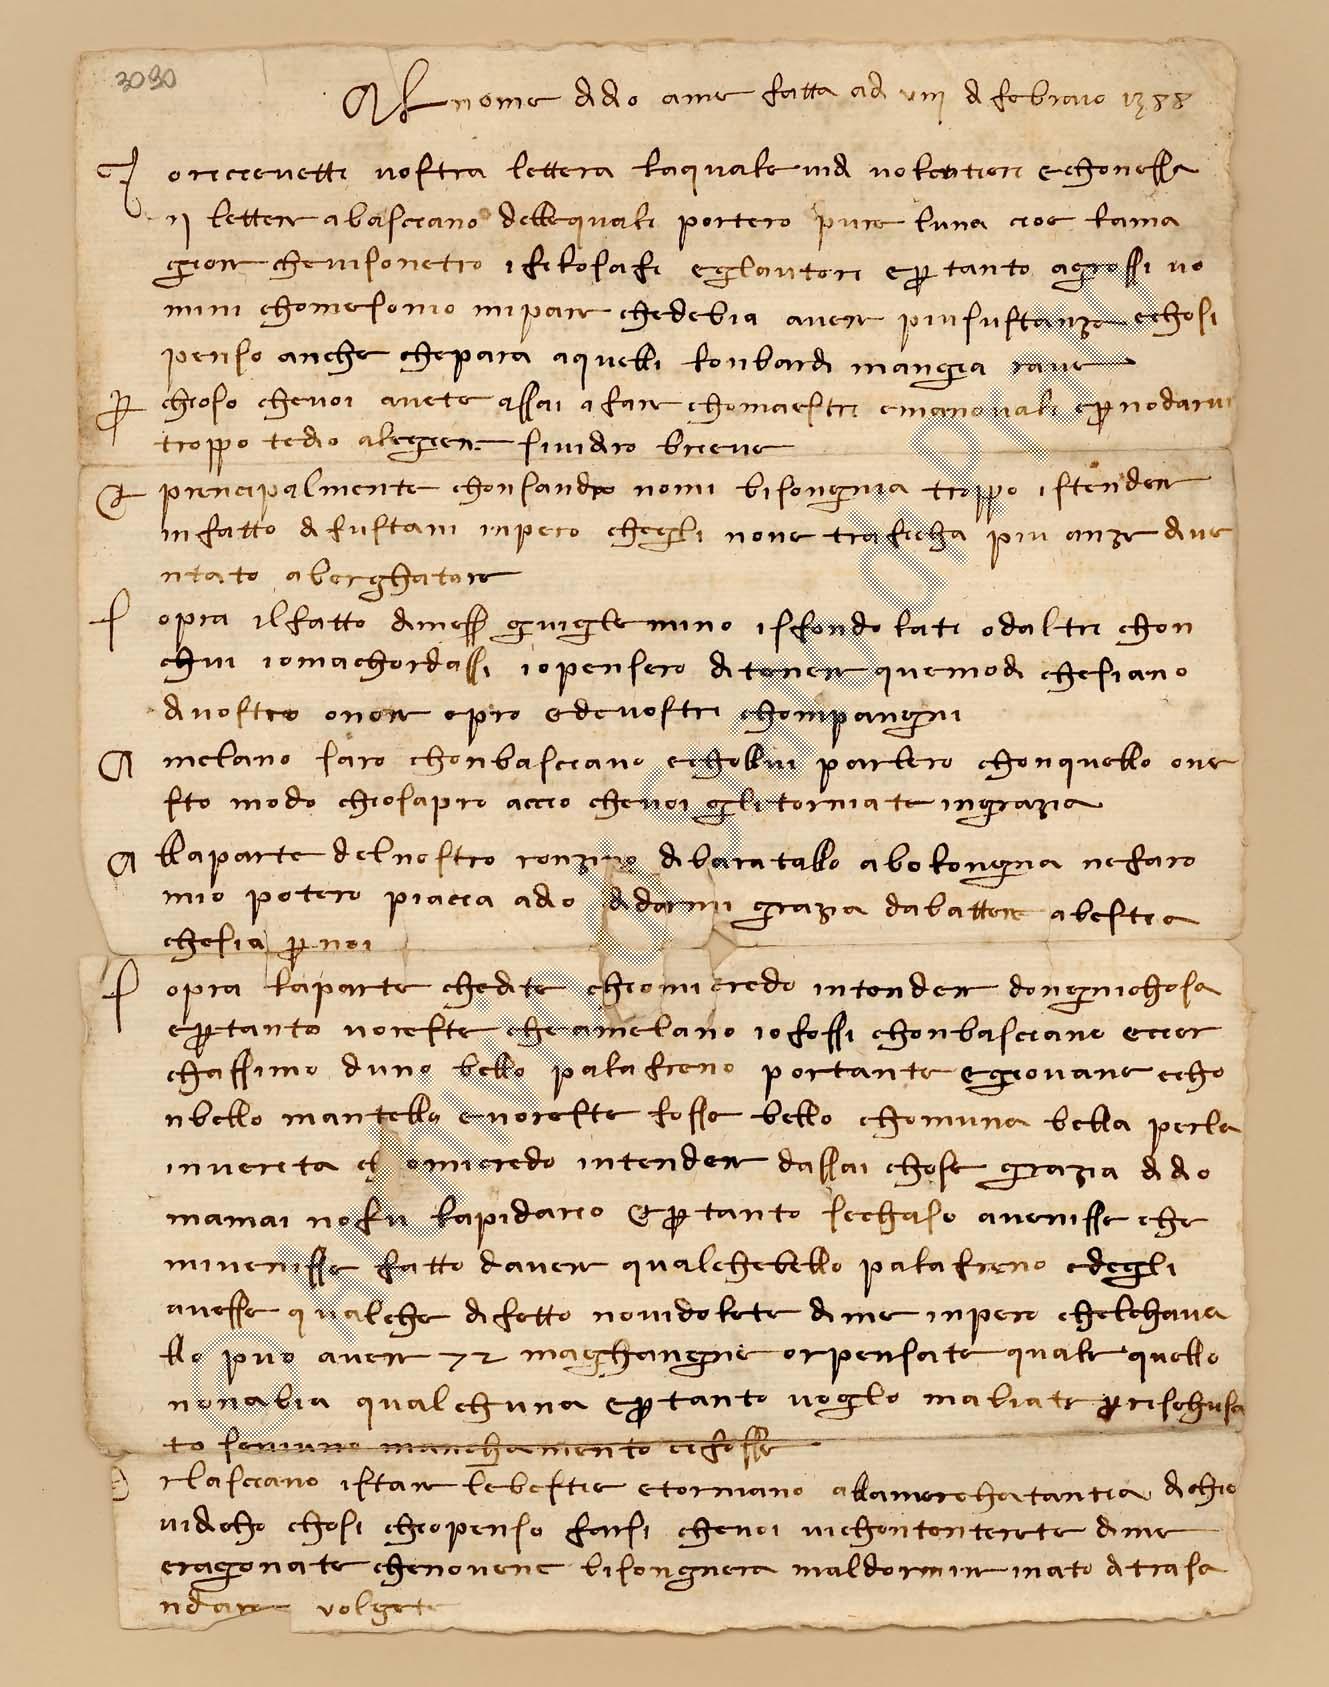 3030
Al nome didio ame fatta ad viii di febraio 1388
Io ricievetti vostra lettera laquale vidi volentieri echonessa
ii lettere abasciano dellequali portero pure luna cioe lama
giore chevisonetro ifilosafi eglautori eptanto agrossi uo
mini chomesonio mipare chedebia avere piusustanze echosi
penso anche chepara aquelli lonbardi mangia rave
p chioso chevoi avete assai afare chomaestri emanovali epnodarvi
troppo tedio alegiere sividiro brieve
E prencipalmente chonsandro nomi bisongnia troppo istendere
infatto di fustani inpero chegli none traficha piu anzi dive
ntato aberghatore
S opra ilfatto dimess guiglielmino isfondolati odaltri chon
chui iomachordassi iopensero ditenere quemodi chesiano
divostro onore epro edevostri chompangni
A melano saro chonbasciano echollui parlero chonquello one
sto modo chiosapro accio chevoi glitorniate ingrazia
A llaparte delnostro ronzino dibaratallo abolongna nefaro
mio potere piaccia adio didarmi grazia dabattere abestia
chesia p noi
S opra laparte chedite chiomicredo intendere dongnichosa
eptanto voreste cheamelano iofossi chonbasciano ecier
chassimo duno bello palafreno portante egiovane echo
nbello mantello evoreste fosse bello chomuna bella perla
invereta ch omicredo intendere dassai chose grazia didio
mamai nofu lapidario eptanto sechaso avenisse che
mivenisse fatto davere qualchebello palafreno edegli
avesse qualche difetto novidolete dime inpero chelchava
llo puo avere 72 maghangnie orpensate quale quello
nonabia qualchuna eptanto voglio mabiate prischusa
to seniuno manchamento cifosse
E rlasciano istare lebestie etorniano allamerchatantia dichio
vidicho chosi chiopenso farsi chevoi vichontenterete dime
eragonate chenovene bisongnera maldormire inato ditrasa
ndare volgete